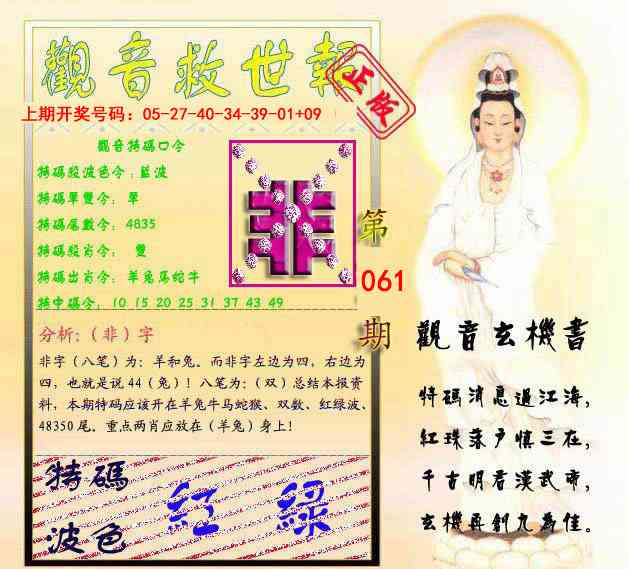 觀音救世報
正版
上期开奖号码：05-27-40-34-39-01+09
觀音特碼口令
特碼殺波色令：藍波
特碼單雙令：單
特碼尾數令：4835
特碼殺肖令：雙
特碼出肖令：羊兔馬蛇牛
特中碼令：10 15 20 25 31 37 43 49
非
第
061
期
分析：（非）字
非字（八笔）为：羊和兔。而非字左边为四，右边为
四，也就是说44（兔）！八笔为：（双）总结本报资
料，本期特码应该开在羊兔牛马蛇猴、双数、红绿波、
48350尾。重点两肖应放在（羊兔）身上！
特碼
波色
紅 綠
觀音玄機書
特碼消息過江海，
紅珠落户慎三在，
千古明君漢武帝，
玄機再創九為佳。